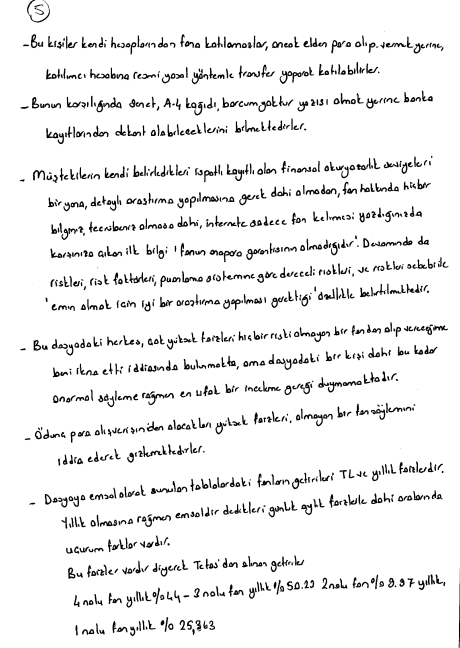 5
- Bu kişiler kendi hesaplarından fona katılamazlar, ancak elden para alıp vermek yerine,
katılımcı hesabına resmi yasal yöntemle transfer yaparak katılabilirler.
- Bunun karşılığında senet, A-4 kağıdı, borcum yoktur yazısı almak yerine banka
kayıtlarından dekont alabileceklerini bilmektedirler.
- Müştekilerin kendi belirledikleri ispatlı kayıtlı olan finansal okuryazarlık seviyeleri
bir yana, detaylı araştırma yapılmasına gerek dahi olmadan, fon hakkında hiçbir
bilginiz, tecrübeniz olmasa dahi, internete sadece fon kelimesi yazdığınızda
karşınıza çıkan ilk bilgi 'fonun anapara garantisinin olmadığıdır'. Devamında da
riskleri, risk faktörleri, puanlama sistemine göre dereceli riskleri, ve riskleri sebebi ile
'emin olmak için iyi bir araştırma yapılması gerektiği' özellikle belirtilmektedir.
- Bu dosyadaki herkes, çok yüksek faizleri hiç bir riski olmayan bir fondan alıp vereceğime
beni ikna etti iddiasında bulunmakta, ama dosyadaki bir kişi dahi bu kadar
anormal söyleme rağmen en ufak bir inceleme gereği duymamaktadır.
- Ödünç para alışverişinden alacakları yüksek faizleri, olmayan bir fon söylemini
iddia ederek gizlemektedirler.
- Dosyaya emsal olarak sunulan tablolardaki fonların getirileri TL ve yıllık faizlerdir.
Yıllık olmasına rağmen emsaldir dedikleri günlük aylık faizlerle dahi aralarında
uçurum farklar vardır.
Bu faizler vardır diyerek Tefas'dan alınan getiriler
4 nolu fon yıllık %44 - 3 nolu fon yıllık %50.29 2 nolu fon %9.97 yıllık,
1 nolu fon yıllık %25,363